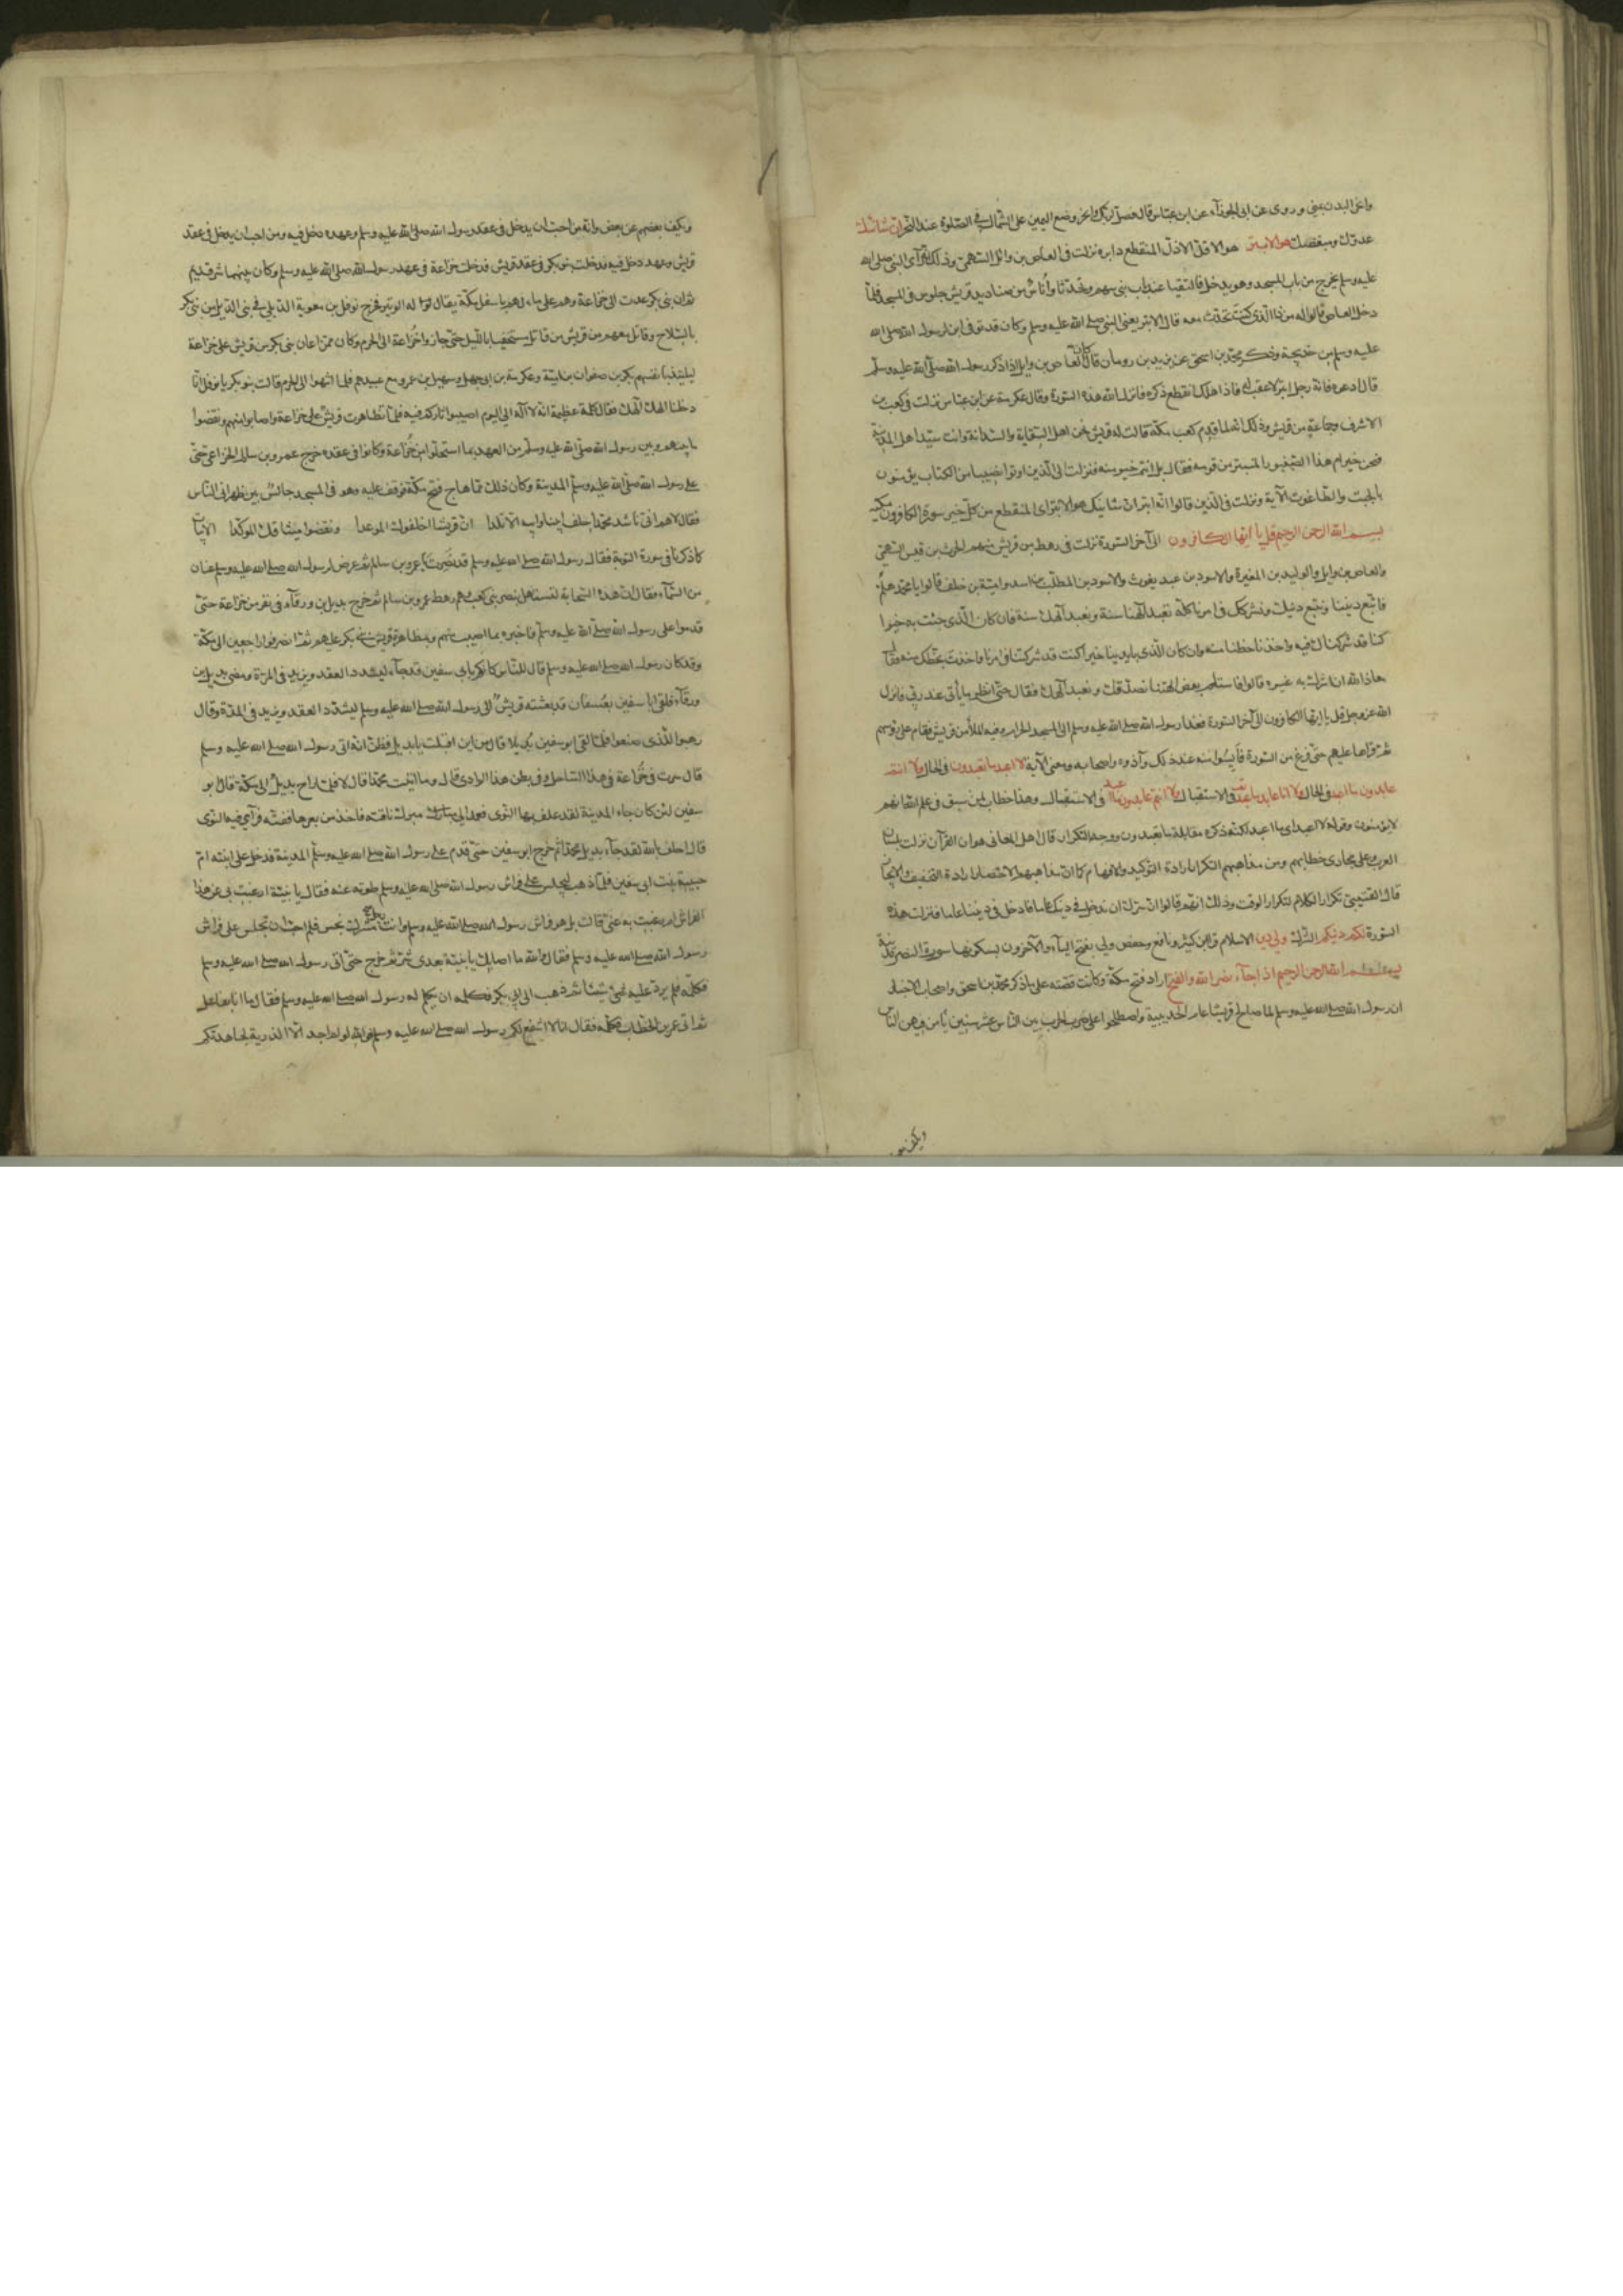 واعن البدن بمنى وروى عن ابى الجوزآء عن ابن عباس قال فصل لربك وانحر وضع اليمين على الشمال فى الصلوة عند النحر ان شانئك
عدوك ومبغضك هو الابتر هو الاقل الاذل المنقطع دابره نزلت فى العاص بن وائل السهمى وذلك انه رآى النبى صلى الله
عليه وسلم يخرج من باب المسجد وهو يدخل فالتقيا عند باب بنى سهم وتحدثا وأناس من صناديد قريش جلوس فى المسجد فلما
دخل العاص قالوا له من ذا الذى كنت تحدث معه قال الابتر يعنى النبى صلى الله عليه وسلم وكان قد توفى ابن لرسول الله صلى الله
عليه وسلم من خديجة وذكر محمد بن اسحق عن يزيد بن رومان قال كان العاص بن وايل اذا ذكر رسول الله صلى الله عليه وسلم
قال دعوه فانه رجل ابتر لا عقب له فاذا هلك انقطع ذكره فانزل الله هذه السورة وقال عكرمة عن ابن عباس نزلت فى كعب بن
الاشرف وجماعة من قريش وذلك انه لما قدم كعب مكة قالت له قريش نحن اهل السقاية والسدانة وانت سيد اهل المدينة
فنحن خير ام هذا الصنبور المنبتر من قومه فقال بل انتم خير منه فنزلت الى الذين اوتوا نصيبا من الكتاب يؤمنون
بالجبت والطاغوت الآية ونزلت فى الذين قالوا انه ابتر ان شانيك هو الابتر اى المنقطع من كل خير سورة الكافرون مكية
بسم الله الرحمن الرحيم قل يا ايها الكافرون الى آخر السورة نزلت فى رهط من قريش منهم الحرث بن قيس السهمى
والعاص بن وايل والوليد بن المغيرة والاسود بن عبد يغوث والاسود بن المطلب بن اسد وامية بن خلف قالوا يا محمد هلم
فاتبع ديننا ونتبع دينك ونشركك فى امرنا كله تعبد آلهتنا سنة ونعبد آلهك سنة فان كان الذى جئت به خيرا
كنا قد شركناك فيه واخذنا حظنا منه وان كان الذى بايدينا خيرا كنت قد شركتنا فى امرنا واخذت بحظك منه فقال
معاذ الله ان اشرك به غيره قالوا فاستلم بعض الهتنا نصدقك ونعبد آلهك فقال حتى انظر ما يأتى عند ربى فانزل
الله عز وجل قل يا ايها الكافرون الى آخر السورة فغدا رسول الله صلى الله عليه وسلم الى المسجد الحرام وفيه الملأ من قريش فقام على رؤسهم
ثم قراها عليهم حتى فرغ من السورة فأيسوا منه عند ذلك وآذوه واصحابه ومعنى الآية لا اعبد ما تعبدون فى الحال ولا انتم
عابدون ما اعبد فى الحال ولا انا عابد ما عبدتم فى الاستقبال ولا انتم عابدون ما اعبد فى الاستقبال وهذا خطاب لمن سبق فى علم الله انهم
لا يؤمنون وقوله لا اعبد اى ما اعبد لكنه ذكره مقابلة ما تعبدون ووجه التكرار قال اهل المعانى هو ان القرآن نزل بلسان
العرب وعلى مجارى خطابهم ومن مذاهبهم التكرار ارادة التوكيد والافهام كما ان مذاهبهم الاختصار ارادة التخفيف والايجاز
قال القتيبى تكرار الكلام لتكرار الوقت وذلك انهم قالوا ان سرك ان ندخل فى دينك عاما فادخل فى ديننا عاما فنزلت هذه
السورة لكم دينكم الشرك ولى دين الاسلام قرا ابن كثير ونافع وحفص ولى بفتح اليآء والآخرون بسكونها سورة النصر مدنية
بسم الله الرحمن الرحيم اذا جآء نصر الله والفتح اراد فتح مكة وكانت قصته على ما ذكر محمد بن اسحق واصحاب الاخبار
ان رسول الله صلى الله عليه وسلم لما صالح قريشا عام الحديبية واصطلحوا على وضع الحرب بين الناس عشر سنين يأمن فيهن الناس
ويكف بعضهم
ويكف بعضهم عن بعض وانه من احب ان يدخل فى عقد رسول الله صلى الله عليه وسلم وعهده دخل فيه ومن احب ان يدخل فى عقد
قريش وعهدهم دخل فيه فدخلت بنو بكر فى عقد قريش فدخلت خزاعة فى عهد رسول الله صلى الله عليه وسلم وكان بينهما شر قديم
ثم ان بنى بكر عدت الى خزاعة وهم على ماء لهم باسفل مكة يقال له الوتير فخرج نوفل بن معوية الديلى فى بنى الديل من بنى بكر
بالسلاح وقاتل معهم من قريش من قاتل مستخفيا بالليل حتى جاوزوا خزاعة الى الحرم وكان ممن اعان بنى بكر من قريش على خزاعة
ليلتئذ بانفسهم بكر بن صفوان بن امية وعكرمة بن ابى جهل وسهيل بن عمرو مع عبيدهم فلما انتهوا الى الحرم قالت بنو بكر يا نوفل انا
دخلنا الهك الهك فقال كلمة عظيمة انه لا اله الى اليوم اصيبوا ثاركم فيه فلما تظاهرت قريش على خزاعة واصابوا منهم ونقضوا
ما بينهم وبين رسول الله صلى الله عليه وسلم من العهد بما استحلوا من خزاعة وكانوا فى عقده خرج عمرو بن سالم الخزاعى حتى
على رسول الله صلى الله عليه وسلم المدينة وكان ذلك مما هاج فتح مكة فوقف عليه وهو فى المسجد جالس بين ظهرانى الناس
فقال لاهم انى ناشد محمدا حلف ابينا وابيه الاتلدا ان قريشا اخلفوك الموعدا ونقضوا ميثاقك المؤكدا الابيات
كما ذكرنا فى سورة التوبة فقال رسول الله صلى الله عليه وسلم قد نصرت يا عمرو بن سالم ثم عرض لرسول الله صلى الله عليه وسلم عنان
من السمآء فقال ان هذه السحابة لتستهل بنصر بنى كعب وهم رهط عمرو بن سالم ثم خرج بديل بن ورقآء فى نفر من خزاعة حتى
قدموا على رسول الله صلى الله عليه وسلم فاخبره بما اصيب منهم وبمظاهرة قريش بنى بكر عليهم ثم انصرفوا راجعين الى مكة
وقد كان رسول الله صلى الله عليه وسلم قال للناس كانكم بابى سفين قد جآء ليشدد العقد ويزيد فى المدة ومضى بديل بن
ورقآء فلقى ابا سفين بعسفان قد بعثته قريش الى رسول الله صلى الله عليه وسلم ليشدد العقد ويزيد فى المدة وقال
رهبوا الذى صنعوا فلما لقى ابو سفين بديلا قال من اين اقبلت يا بديل وظن انه اتى رسول الله صلى الله عليه وسلم
قال سرت فى خزاعة فى هذا الساحل وفى بطن هذا الوادى قال وما اتيت محمدا قال لا فلما راح بديل الى مكة قال ابو
سفين لئن كان جاء المدينة لقد علف بها النوى فعمد الى مبرك ناقته فاخذ من بعرها ففته فرآى فيه النوى
قال احلف بالله لقد جآء بديل محمدا ثم خرج ابو سفين حتى قدم على رسول الله صلى الله عليه وسلم المدينة فدخل على ابنته ام
حبيبة بنت ابى سفين فلما ذهب ليجلس على فراش رسول الله صلى الله عليه وسلم طوته عنه فقال يا بنية ارغبت بى عن هذا
الفراش ام رغبت به عنى قالت بل هو فراش رسول الله صلى الله عليه وسلم وانت رجل مشرك نجس فلم احب ان تجلس على فراش
رسول الله صلى الله عليه وسلم فقال والله ما اصابك يا بنية بعدى شر ثم خرج حتى اتى رسول الله صلى الله عليه وسلم
فكلمه فلم يرد عليه شيئا ثم ذهب الى ابى بكر فكلمه ان يكلم له رسول الله صلى الله عليه وسلم فقال ما انا بفاعل
ثم اتى عمر بن الخطاب فكلمه فقال انا لا اشفع لكم رسول الله صلى الله عليه وسلم فوالله لو لم اجد الا الذر به لجاهدتكم